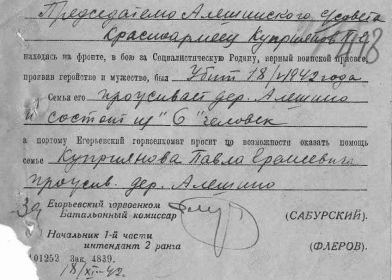 Председателю Алешинского с/совета
Красноармеец Куприянов П.
находясь на фронте, в бою за Социалистическую Родину, верный воинской присяге,
проявив геройство и мужество, был Убит 18/ 1942 года
Семья его проживает дер. Алешино
и состоит из "6" человек
а потому Егорьевский горвоенком просит по возможности оказать помощь
семье Куприянова Павла
прожив. дер. Алешино
Егорьевский горвоенком
Батальонный комиссар (САБУРСКИЙ).
Начальник 1-й части
интендант 2 ранга (ФЛЕРОВ).
01252 Зак. 4839.
18/XII-42.